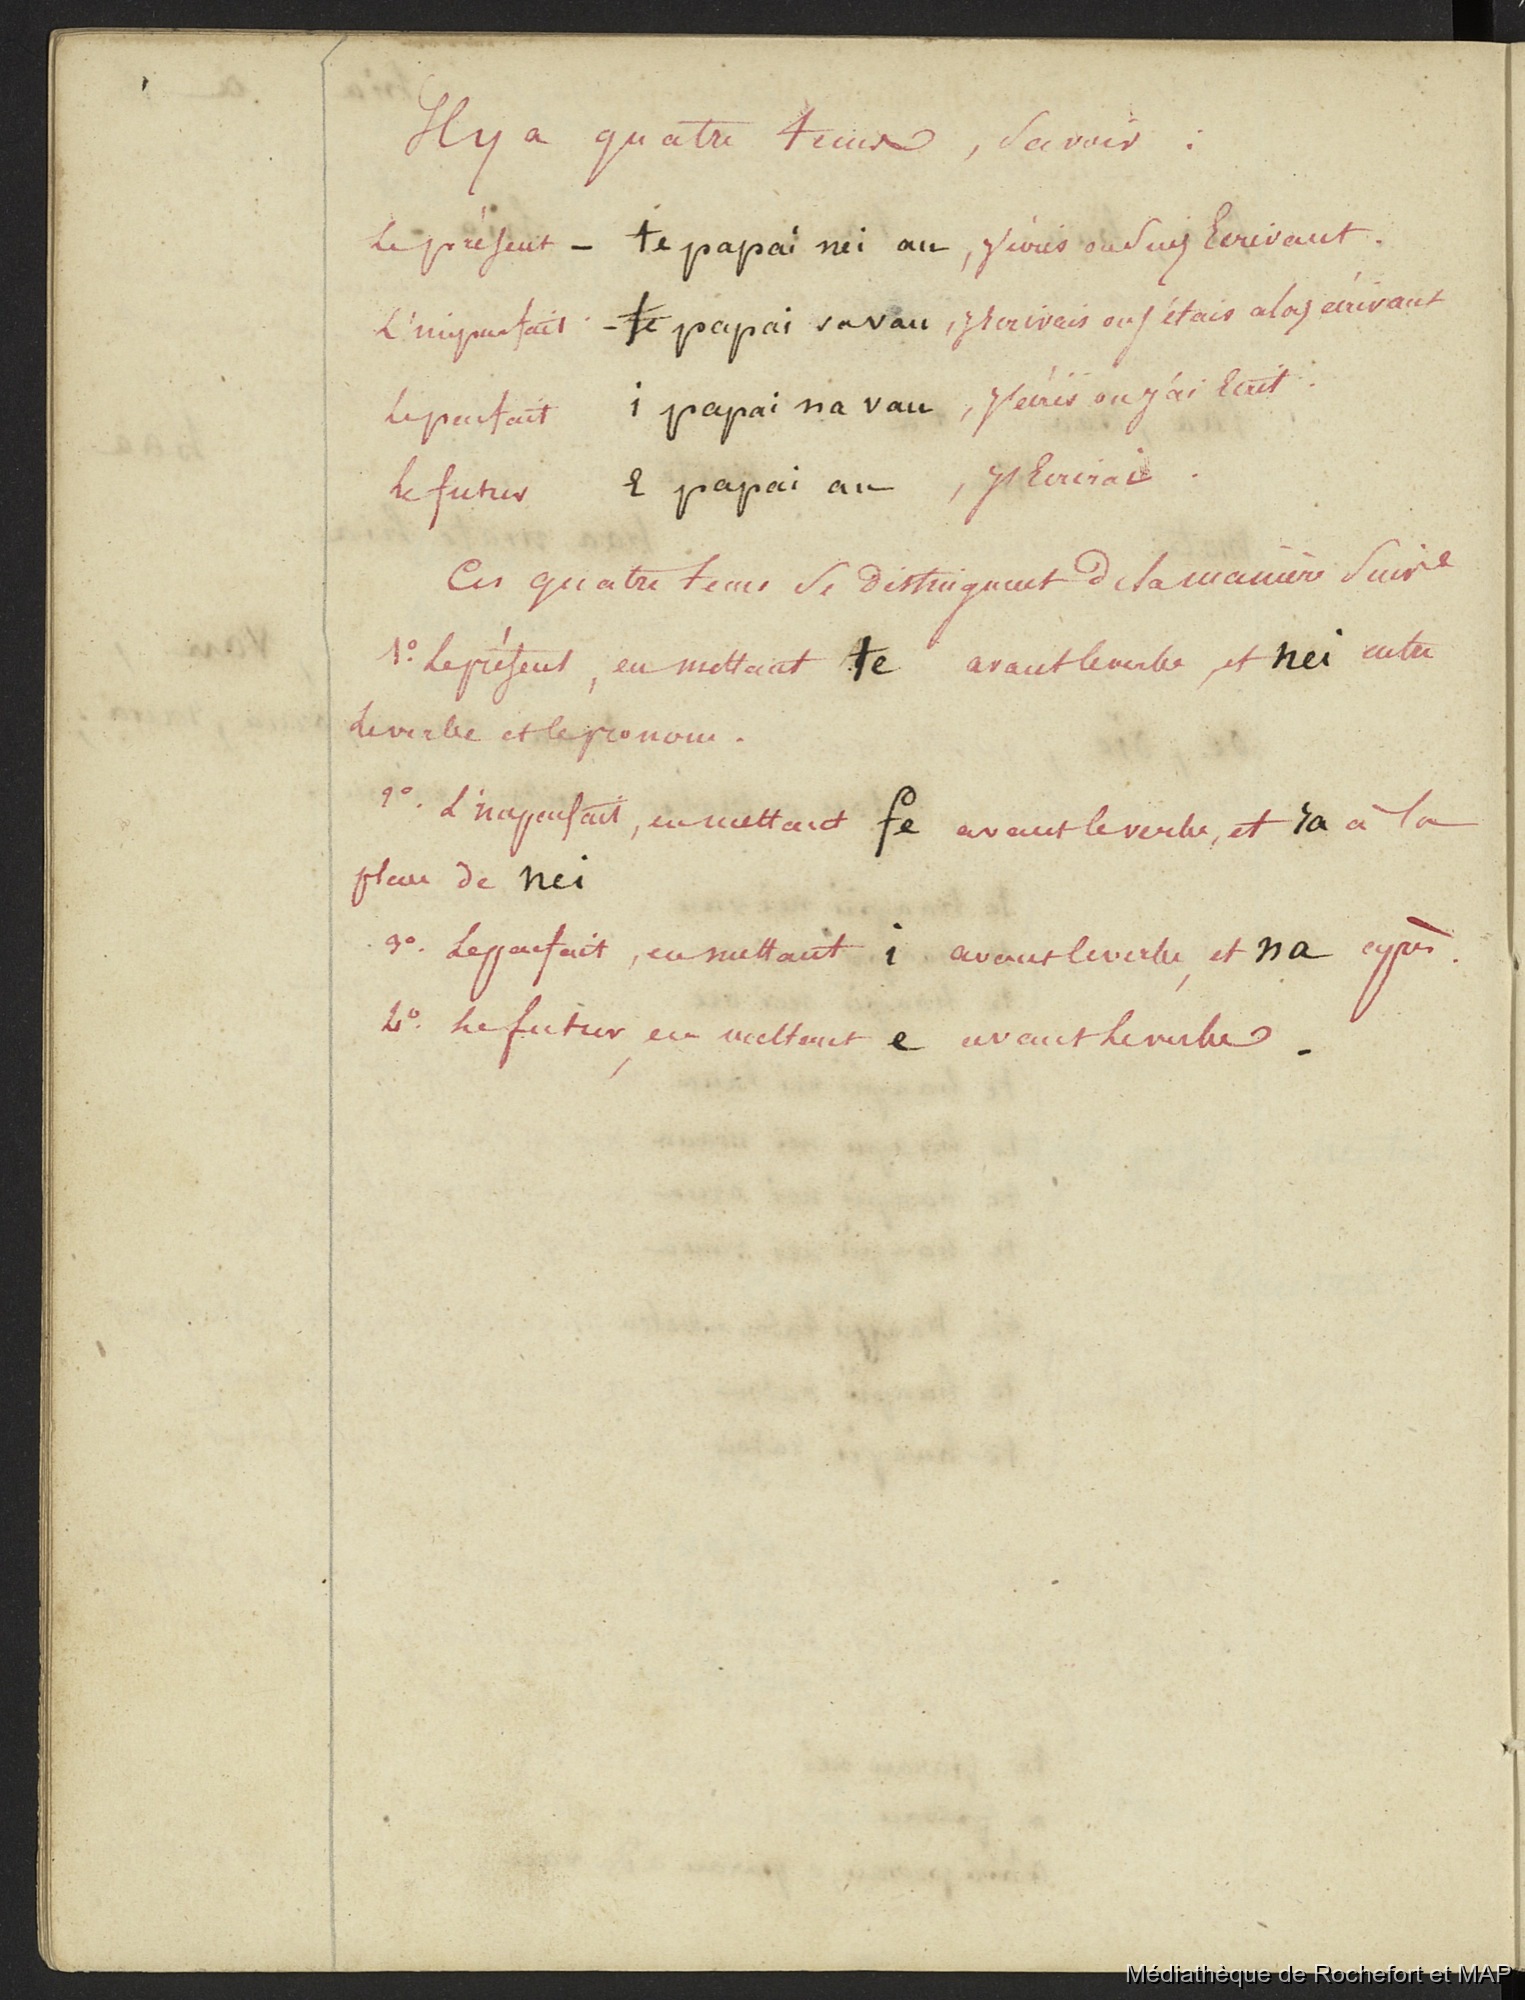 Il y a quatre tems, savoir :
Le présent - te papai nei au, j'écris ou suis Ecrivant.
L'imparfait - te papai ra vau, j'Ecrivais ou j'étais alors écrivant
Le parfait i papai na vau, j'écris ou j'ai Ecrit.
Le futur E papai au, j'Ecrirai.
Ces quatre tems se distinguent de la manière suive
1º. Le présent, en mettant te avant le verbe, et nei entre
le verbe et le pronom.
2º. L'imparfait, en mettant te avant le verbe, et ra à la
place de nei
3º. Le parfait, en mettant i avant le verbe, et na après.
4º. Le futur, en mettant e avant le verbe.
Médiathèque de Rochefort et MAP